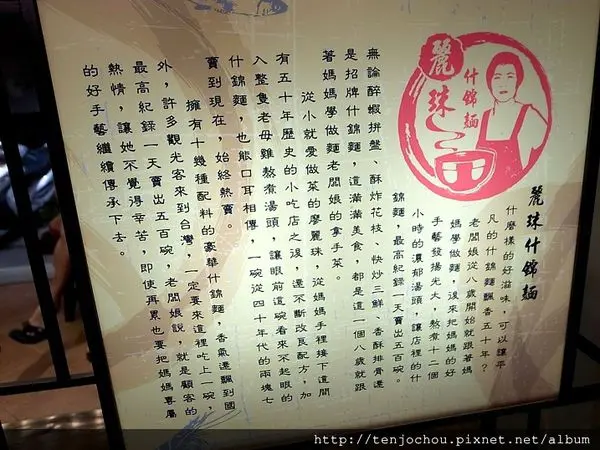 麗珠
什錦麵
麗珠什錦麵
什麼樣的好滋味，可以讓平
凡的什錦麵飄香五十年？
老闆娘從八歲開始就跟著媽
媽學做麵，後來把媽媽的好
手藝發揚光大，熬煮十二個
小時的濃郁湯頭，讓店裡的什
錦麵，最高紀錄一天賣出五百碗。
無論醉蝦拼盤、酥炸花枝、快炒三鮮、香酥排骨還
是招牌什錦麵，這滿滿美食，都是這一個八歲就跟
著媽媽學做麵老闆娘的拿手菜。
從小就愛做菜的廖麗珠，從媽媽手裡接下這間
有五十年歷史的小吃店之後，還不斷改良配方，加
入整隻老母雞熬煮湯頭，讓眼前這碗看來不起眼的
什錦麵，也能口耳相傳，一碗從四十年代的兩塊七
賣到現在，始終熱賣。
擁有十幾種配料的豪華什錦麵，香氣還飄到國
外，許多觀光客來到台灣，一定要來這裡吃上一碗，
最高紀錄一天賣出五百碗，老闆娘說，就是顧客的
熱情，讓她不覺得辛苦，即使再累也要把媽媽專屬
的好手藝繼續傳承下去。
http://tenjochou.pixnet.net/album